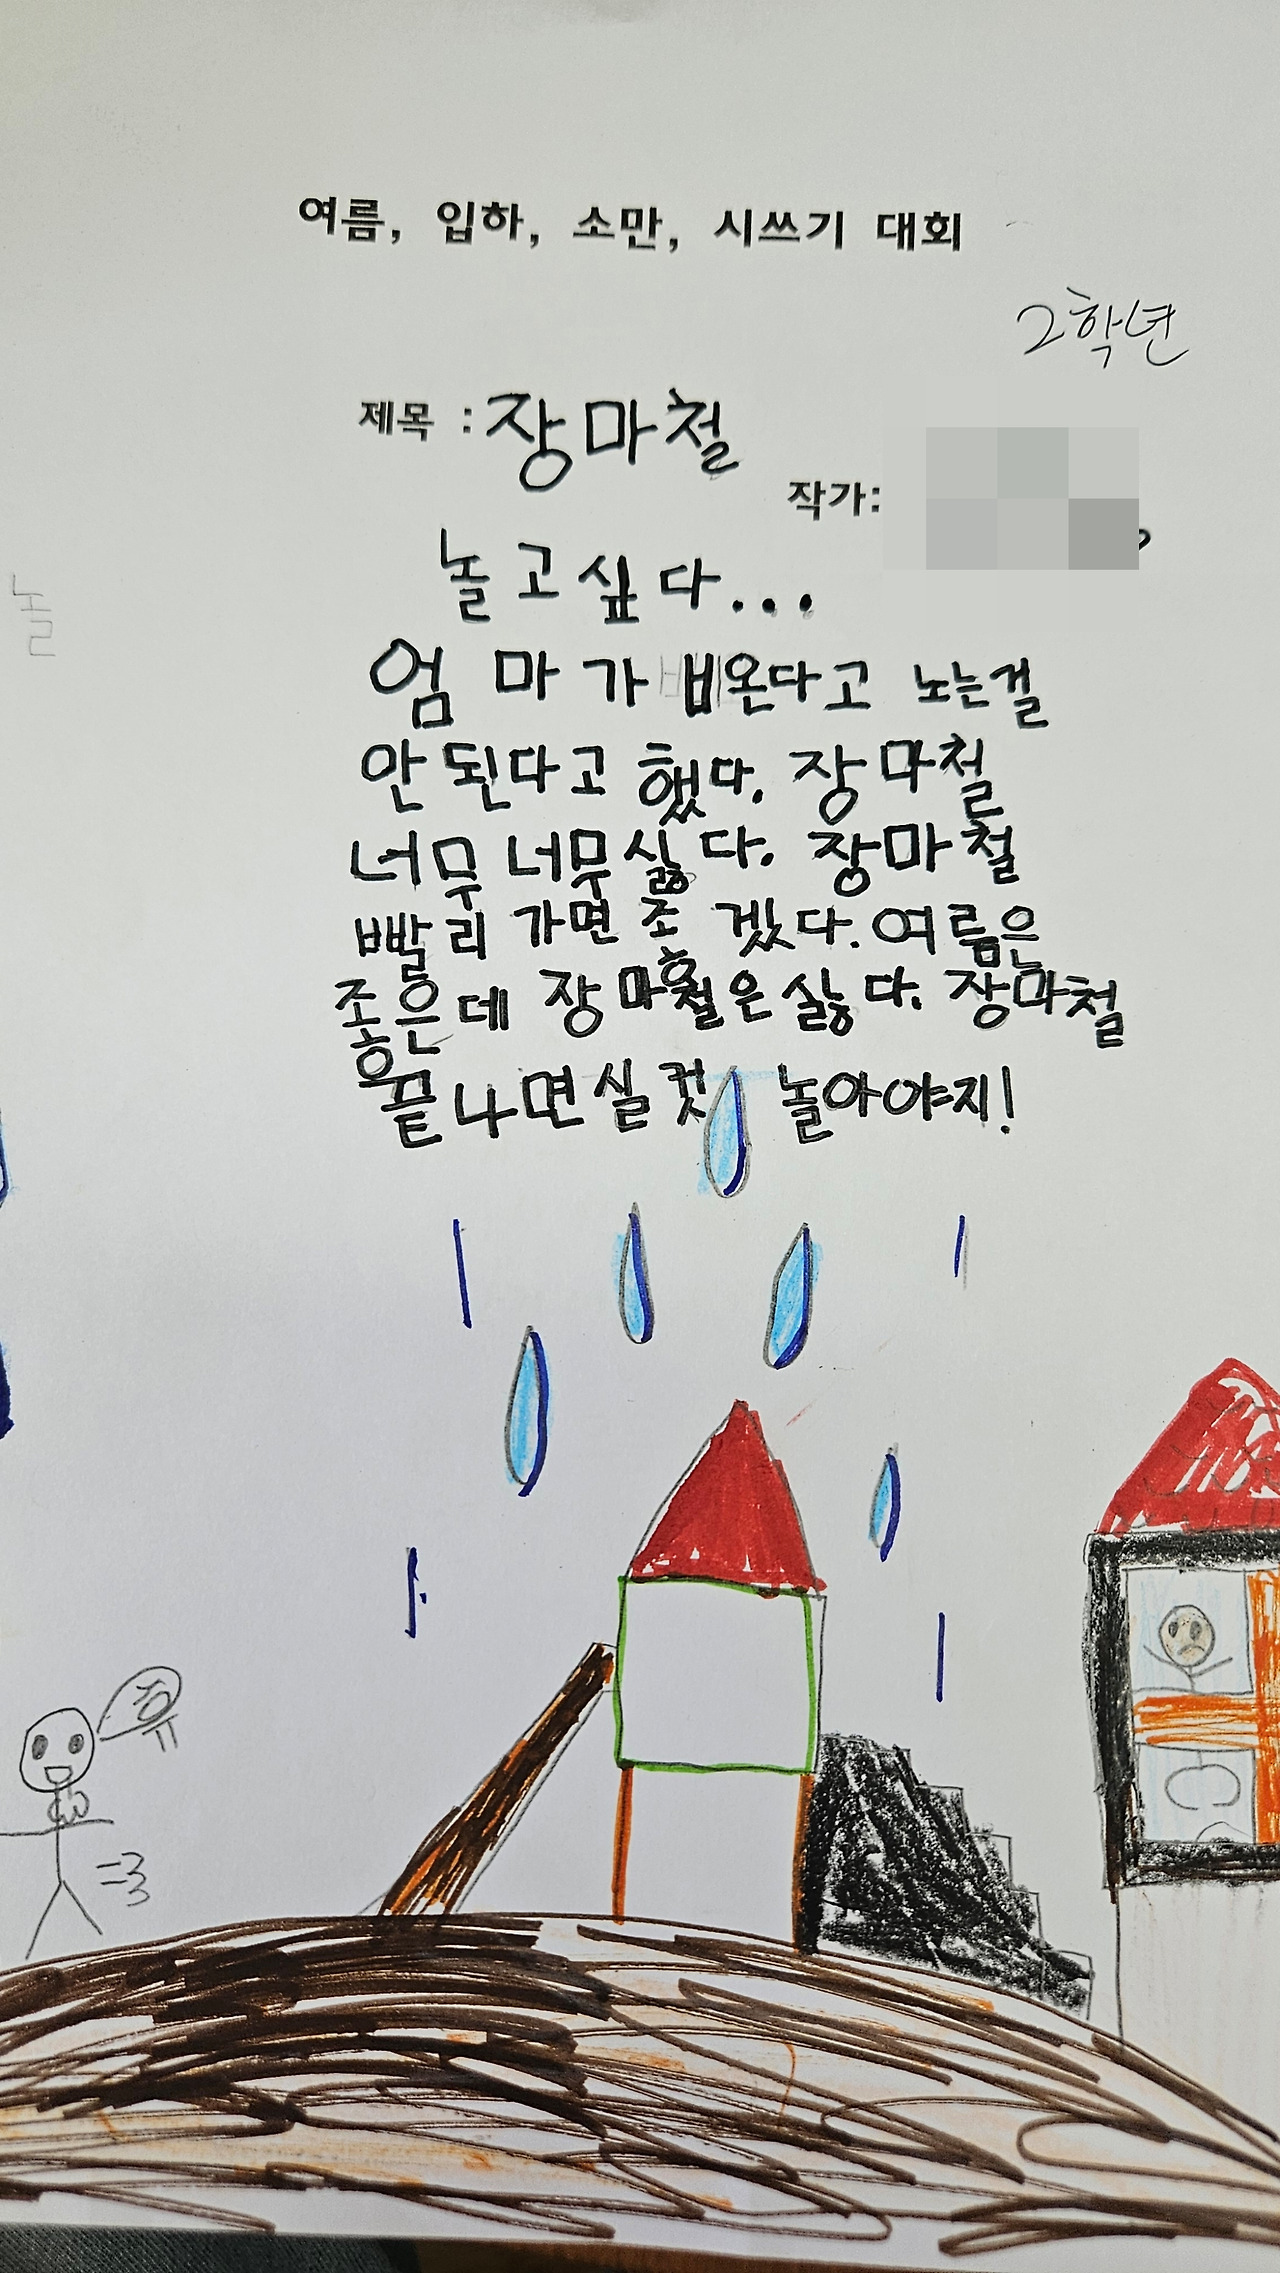 여름, 입하, 소만, 시쓰기 대회
2학년
제목 : 장마철
작가:
놀고싶다...
놀
엄마가 비온다고 노는걸
안된다고 했다. 장마철
너무 너무싫다. 장마철
빨리 가면 좋겠다. 여름은
좋은데 장마철은싫다. 장마철
끝나면실컷 놀아야지!
휴
=3